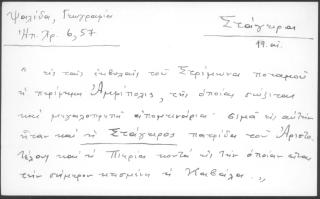 Ψαλίδα, Γεωγραφία
Ἠπ. Χρ. 6, 57
Στάγειρα
19. αἰ.
" εἰς ταῖς ἐκβολαῖς τοῦ Στρύμωνα ποταμοῦ
ἡ περίφημη Ἀμφίπολις, τῆς ὁποίας σώζεται
καὶ μεγαλοπρεπῆ ἀπομεινάρια· σιμὰ εἰς αὐτὴν
ἦταν καὶ ἡ Στάγειρος πατρίδα τοῦ Ἀριστο-
τέλους καὶ ἡ Πιερία κοντὰ εἰς τὴν ὁποίαν εἶναι
τὴν σήμερον κτισμένη ἡ Καβάλα..."